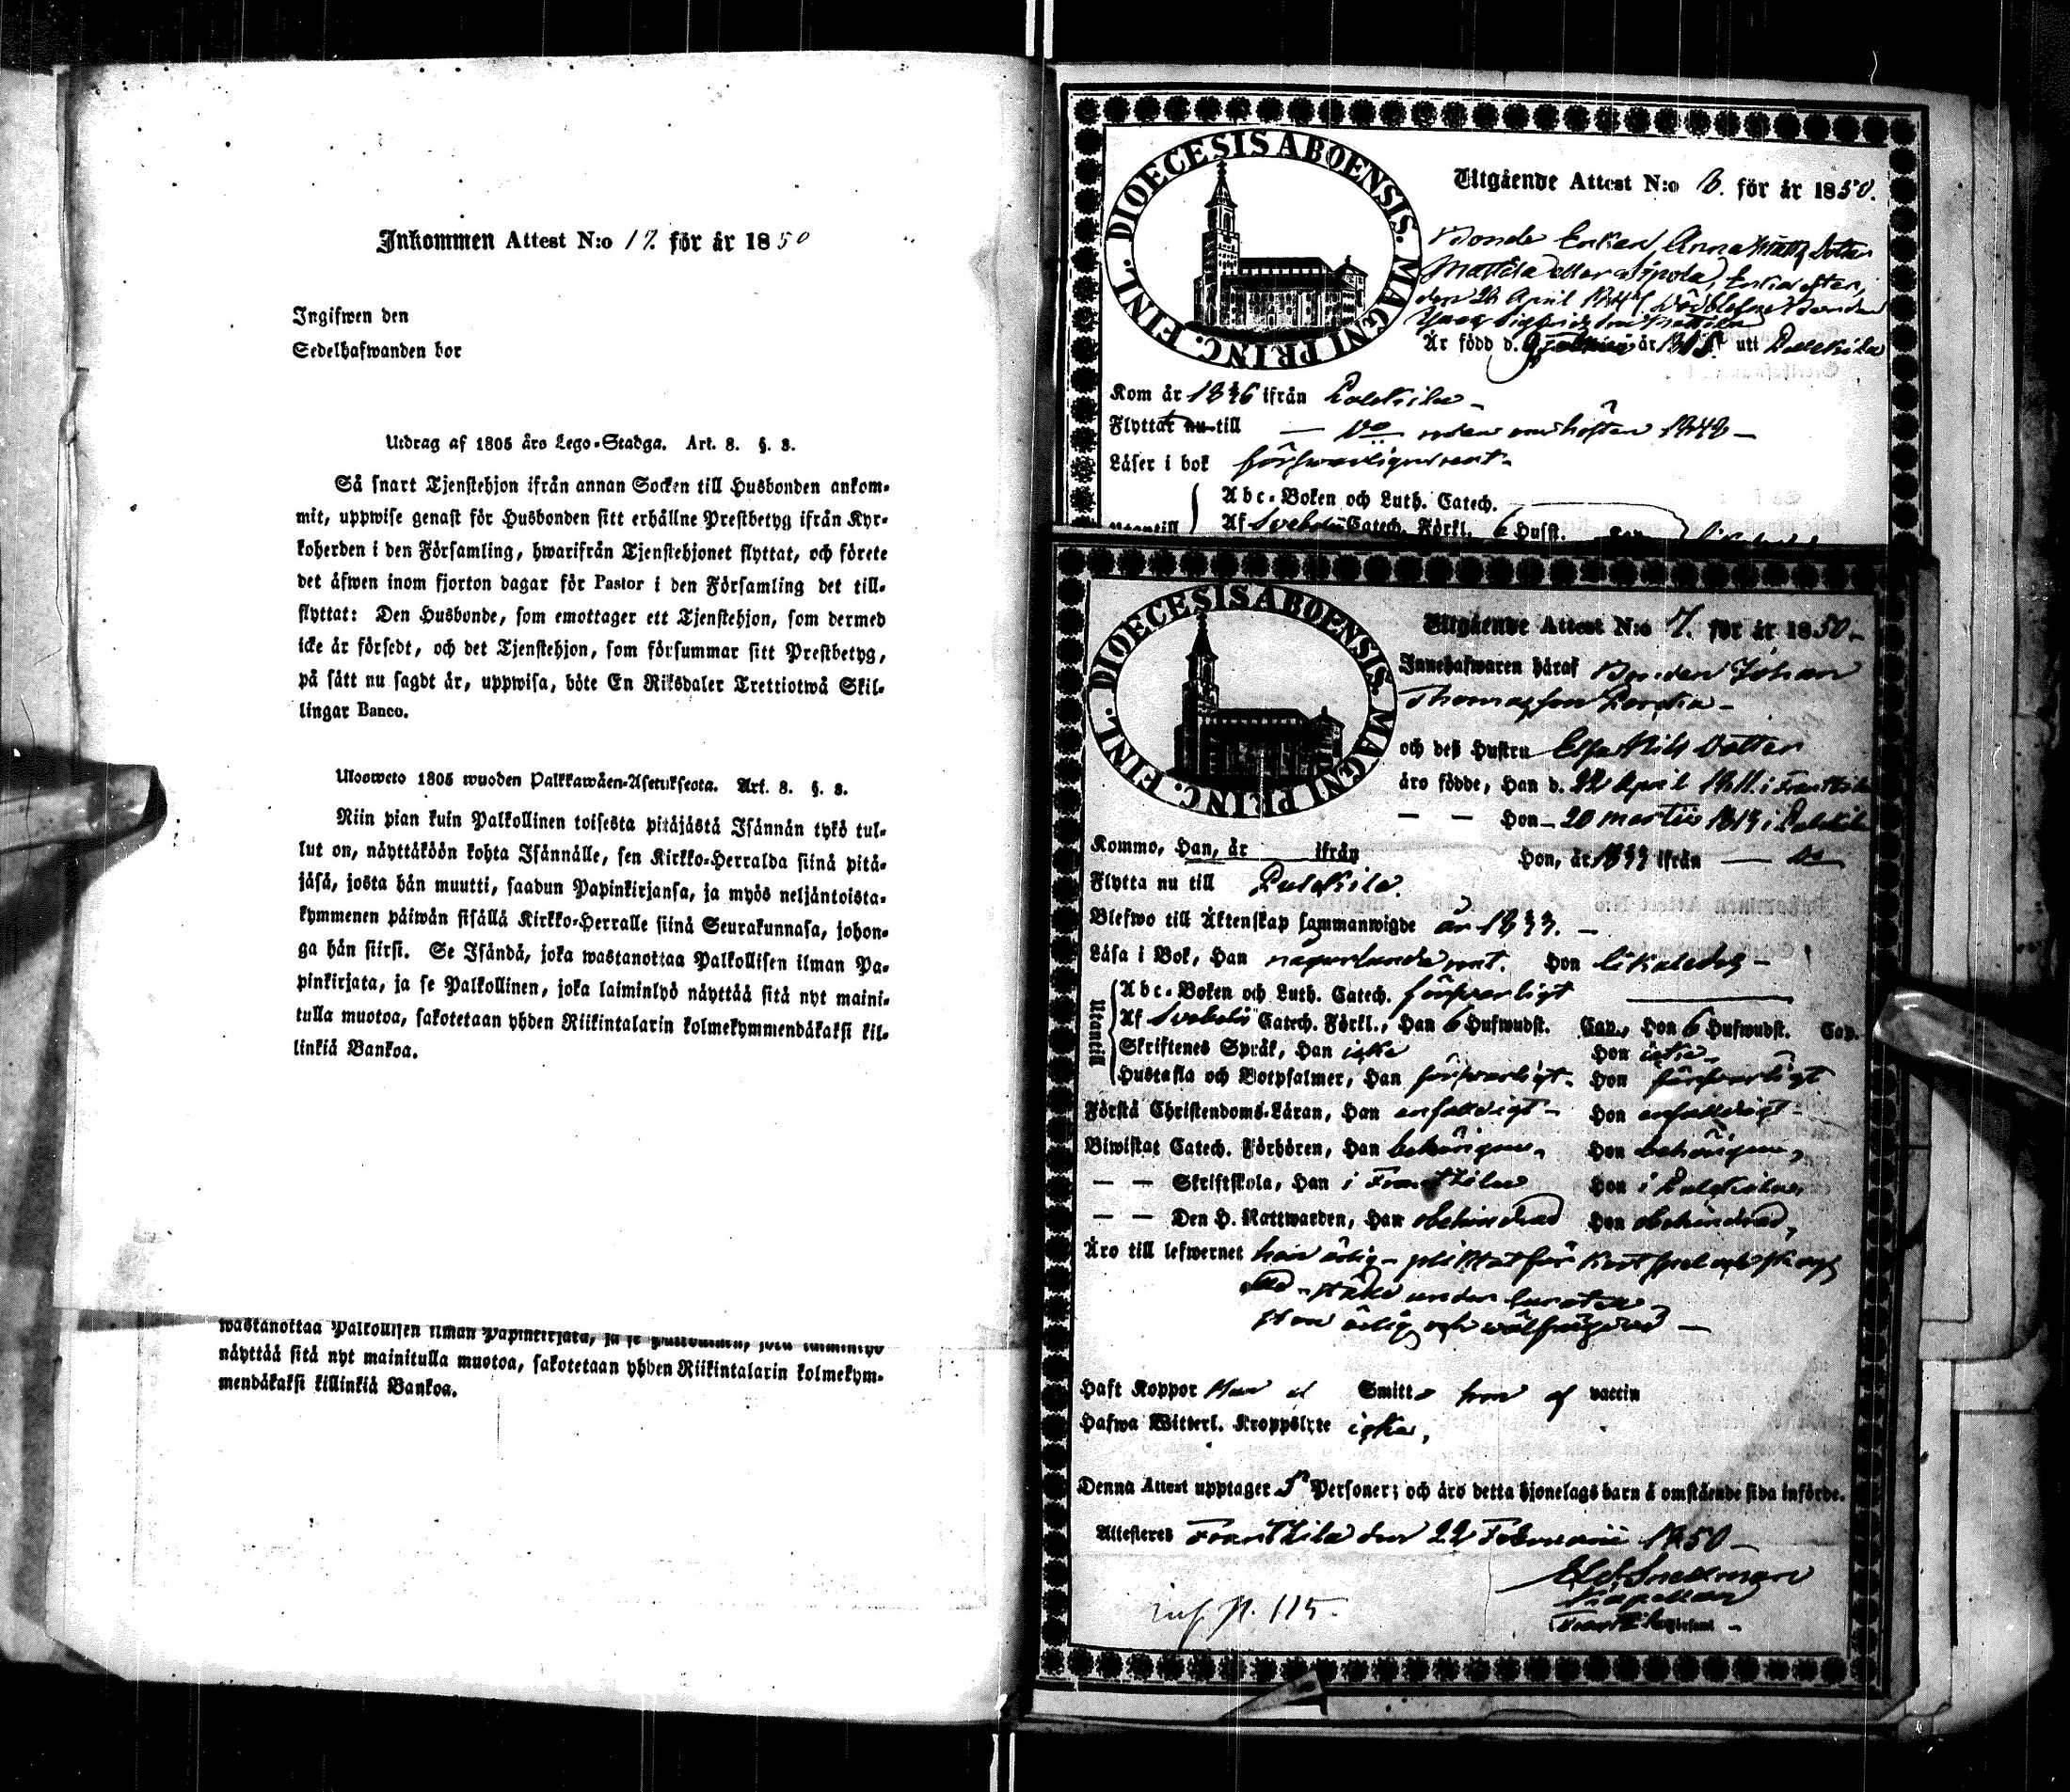 Inkommen Attest N:o 17. för år 1850
Ingifwen den
Sedelhafwanden bor
Utdrag af 1805 års Lego-Stadga. Art. 8. §. 8.
Så snart Tjenstehjon ifrån annan Socken till Husbonden ankom-
mit, uppwise genast för Husbonden sitt erhållne Prestbetyg ifrån Kyr-
koherden i den Församling, hwarifrån Tjenstehjonet flyttat, och förete
det äfwen inom fjorton dagar för Pastor i den Församling det till-
flyttat: Den Husbonde, som emottager ett Tjenstehjon, som dermed
icke är försedt, och det Tjenstehjon, som försummar sitt Prestbetyg,
på sätt nu sagdt är, uppwisa, böte En Riksdaler Trettiotwå Skil-
lingar Banco.
Ulosweto 1805 wuoden Palkkawäen-Asetuksesta. Art. 8. §. 8.
Niin pian kuin Palkollinen toisesta pitäjästä Isännän tykö tul-
lut on, näyttäköön kohta Isännälle, sen Kirkko-Herralda siinä pitä-
jäsä, josta hän muutti, saadun Papinkirjansa, ja myös neljäntoista-
kymmenen päiwän sisällä Kirkko-Herralle siinä Seurakunnasa, johon-
ga hän siirsi. Se Isändä, joka wastanottaa Palkollisen ilman Pa-
pinkirjata, ja se Palkollinen, joka laiminlyö näyttää sitä nyt maini-
tulla muotoa, sakotetaan yhden Riikintalarin kolmekymmendäkaksi kil-
linkiä Bankoa.
wastanottaa Palkollisen ilman Papinkirjata, ja se Palkollinen, joka laiminlyö
näyttää sitä nyt mainitulla muotoa, sakotetaan yhden Riikintalarin kolmekym-
mendäkaksi killinkiä Bankoa.
DIOECESIS ABOENSIS. MAGNI PRINC. FINL.
Utgående Attest N:o 8. för år 1850.
Bonde Enkan Anna Matts Dotter
Mattila eller Sipola, Enka efter,
den 26 April
Är född d. år att Pulkkila
Kom år 1836 ifrån Pulkkila
Flyttat nu till — Do redan om hösten 1848 —
Läser i bok försvarligen
Abc-Boken och Luth. Catech.
Af Svebelii Catech. Förkl. 6 Hufst. Cap.
DIOECESIS ABOENSIS. MAGNI PRINC. FINL.
Utgående Attest N:o 7. för år 1850.
Innehafwaren häraf Bonden Johan
Thomasson
och deß Hustru Elsa Nils Dotter
äro födde, Han d. 22 April 1811. i Frantsila
— — Hon 20 martii 1813 i Pulkkila
Kommo, Han, år ifrån Hon, år 1833 ifrån — Do
Flytta nu till Pulkkila.
Blefwo till Äktenskap sammanwigde år 1833. —
Läsa i Bok, Han någorlunda rent. Hon likaledes —
Utantill
Abc-Boken och Luth. Catech. försvarligt
Af Svebelii Catech. Förkl., Han 6 Hufwudst. Cap., Hon 6 Hufwudst. Cap.
Skriftenes Språk, Han icke Hon icke
Hustafla och Botpsalmer, Han försvarligt. Hon försvarligt
Förstå Christendoms-Läran, Han enfaldigt — Hon enfaldigt —
Biwistat Catech. Förhören, Han behörigen, Hon behörigen,
— — Skriftskola, Han i Frantsila Hon i Pulkkila,
— — Den H. Nattwarden, Han obehindrad Hon obehindrad,
Äro till lefwernet han ärlig — pliktat för kortspel och
under
Hon ärlig och wälfrägdad —
Haft Koppor Han Smitt hon af vaccin
Hafwa Witterl. Kroppslyte icke,
Denna Attest upptager 5 Personer; och äro detta hjonelags barn å omstående sida införde.
Attesteres Frantsila den 22 Februarii 1850 —
Snellman
Kapellan
Frantsila
inf. p. 115.